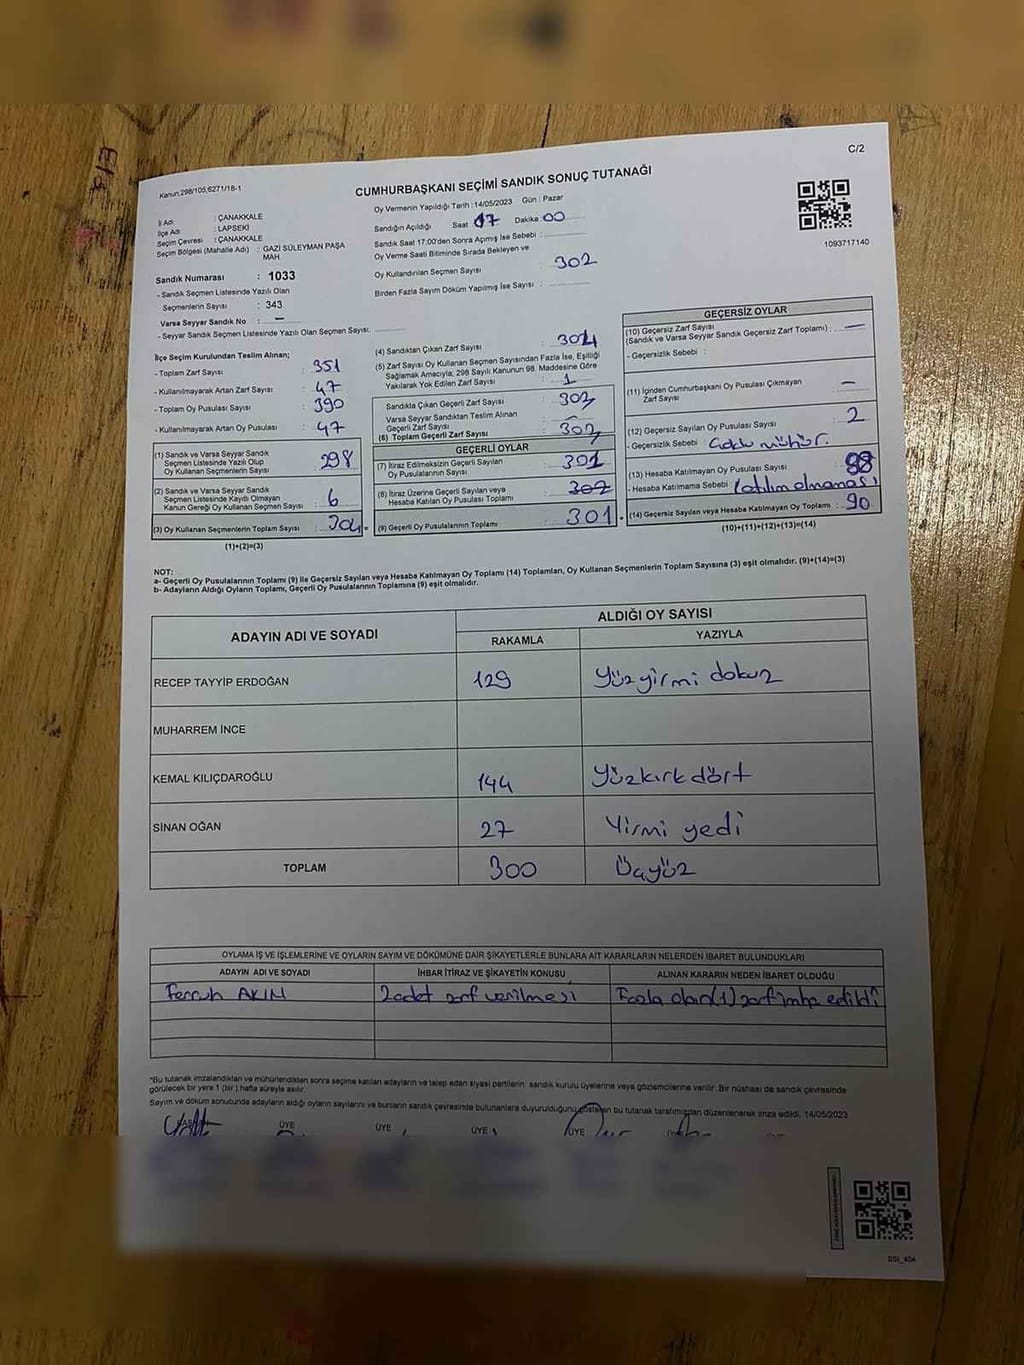 C/2
Kanun:298/105,6271/18-1
CUMHURBAŞKANI SEÇİMİ SANDIK SONUÇ TUTANAĞI
İl Adı : ÇANAKKALE
İlçe Adı : LAPSEKİ
Seçim Çevresi : ÇANAKKALE
Seçim Bölgesi (Mahalle Adı) : GAZİ SÜLEYMAN PAŞA
MAH
Sandık Numarası : 1033
- Sandık Seçmen Listesinde Yazılı Olan
Seçmenlerin Sayısı : 343
Varsa Seyyar Sandık No : -
- Seyyar Sandık Seçmen Listesinde Yazılı Olan Seçmen Sayısı:
Oy Vermenin Yapıldığı Tarih :14/05/2023 Gün : Pazar
Sandığın Açıldığı Saat 17 Dakika: 00
Sandık Saat 17:00'den Sonra Açımış İse Sebebi :
Oy Verme Saati Bitiminde Sırada Bekleyen ve
Oy Kullandırılan Seçmen Sayısı : 302
Birden Fazla Sayım Döküm Yapılmış İse Sayısı :
1093717140
İlçe Seçim Kurulundan Teslim Alınan;
- Toplam Zarf Sayısı : 351
- Kullanılmayarak Artan Zarf Sayısı : 47
- Toplam Oy Pusulası Sayısı : 390
- Kullanılmayarak Artan Oy Pusulası : 47
(1) Sandık ve Varsa Seyyar Sandık
Seçmen Listesinde Yazılı Olup
Oy Kullanan Seçmenlerin Sayısı : 298
(2) Sandık ve Varsa Seyyar Sandık
Seçmen Listesinde Kayıtlı Olmayan
Kanun Gereği Oy Kullanan Seçmen Sayısı : 6
(3) Oy Kullanan Seçmenlerin Toplam Sayısı : 304 =
(1)+(2)=(3)
(4) Sandıktan Çıkan Zarf Sayısı : 304
(5) Zarf Sayısı Oy Kullanan Seçmen Sayısından Fazla İse, Eşitliği
Sağlamak Amacıyla; 298 Sayılı Kanunun 98. Maddesine Göre
Yakılarak Yok Edilen Zarf Sayısı : 1
Sandıkta Çıkan Geçerli Zarf Sayısı : 303
Varsa Seyyar Sandıktan Teslim Alınan
Geçerli Zarf Sayısı : -
(6) Toplam Geçerli Zarf Sayısı : 303
GEÇERLİ OYLAR
(7) İtiraz Edilmeksizin Geçerli Sayılan
Oy Pusulalarının Sayısı : 301
(8) İtiraz Üzerine Geçerli Sayılan veya
Hesaba Katılan Oy Pusulası Toplamı : 302
(9) Geçerli Oy Pusulalarının Toplamı : 301
GEÇERSİZ OYLAR
(10) Geçersiz Zarf Sayısı
(Sandık ve Varsa Seyyar Sandık Geçersiz Zarf Toplamı) : -
- Geçersizlik Sebebi :
(11) İçinden Cumhurbaşkanı Oy Pusulası Çıkmayan
Zarf Sayısı : -
(12) Geçersiz Sayılan Oy Pusulası Sayısı : 2
- Geçersizlik Sebebi : mühür.
(13) Hesaba Katılmayan Oy Pusulası Sayısı : 88
- Hesaba Katılmama Sebebi : katılım olmaması
(14) Geçersiz Sayılan veya Hesaba Katılmayan Oy Toplamı : 90
(10)+(11)+(12)+(13)=(14)
NOT:
a- Geçerli Oy Pusulalarının Toplamı (9) ile Geçersiz Sayılan veya Hesaba Katılmayan Oy Toplamı (14) Toplamları, Oy Kullanan Seçmenlerin Toplam Sayısına (3) eşit olmalıdır. (9)+(14)=(3)
b- Adayların Aldığı Oyların Toplamı, Geçerli Oy Pusulalarının Toplamına (9) eşit olmalıdır.
ADAYIN ADI VE SOYADI
ALDIĞI OY SAYISI
RAKAMLA YAZIYLA
RECEP TAYYİP ERDOĞAN 129 Yüzyirmi dokuz
MUHARREM İNCE
KEMAL KILIÇDAROĞLU 144 Yüzkırk dört
SİNAN OĞAN 27 Yirmi yedi
TOPLAM 300 Üçyüz
OYLAMA İŞ VE İŞLEMLERİNE VE OYLARIN SAYIM VE DÖKÜMÜNE DAİR ŞİKAYETLERLE BUNLARA AİT KARARLARIN NELERDEN İBARET BULUNDUKLARI
ADAYIN ADI VE SOYADI İHBAR İTİRAZ VE ŞİKAYETİN KONUSU ALINAN KARARIN NEDEN İBARET OLDUĞU
Ferruh AKIN 2 adet zarf verilmesi Fazla olan (1) zarf imha edildi
"Bu tutanak imzalandıktan ve mühürlendikten sonra seçime katılan adayların ve talep eden siyasi partilerin sandık kurulu üyelerine veya gözlemcilerine verilir. Bir nüshası da sandık çevresinde
görülecek bir yere 1 (bir) hafta süreyle asılır.
Sayım ve döküm sonucunda adayların aldığı oyların sayılarını ve bunların sandık çevresinde bulunanlara duyurulduğunu gösteren bu tutanak tarafımızdan düzenlenerek imza edildi. 14/05/2023
ÜYE ÜYE ÜYE ÜYE